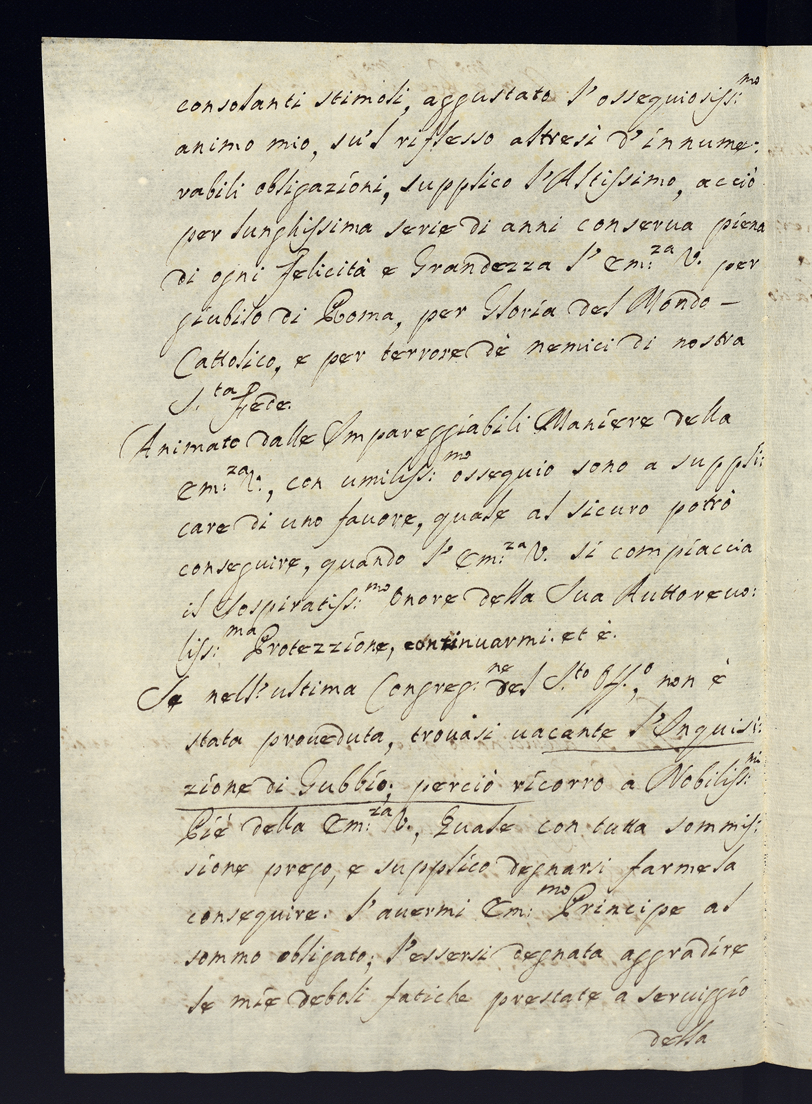 consolanti stimoli, aggustato l'ossequiosiss:mo
animo mio, su'l riflesso altresi d'innume:
rabili obligazioni, supplico l'Altissimo, acciò
per lunghissima serie di anni conserva piena
di ogni felicità e Grandezza l'Em:za V. per
giubilo di Roma, per Gloria del Mondo –
Cattolico, e per terrore dè nemici di nostra
S.ta Fede.
Animato dalle Impareggiabili Maniere della
Em:za V., con umiliss:mo ossequio sono a suppli:
care di uno favore, quale al sicuro potrò
conseguire, quando l'Em:za V. si compiaccia
il Sospiratiss:mo Onore della Sua Auttoreuo:
liss:ma Protezzione, continuarmi. et è.
Se nell'ultima Congreg:ne del S.to Off.o, non è
stata proueduta, trouasi uacante l'Inquisi:
zione di Gubbio; perciò ricorro a Nobiliss:mi
Piè della Em:za V., Quale con tutta sommis:
sione prego, e supplico degnarsi farmela
conseguire. l'auermi Em:mo Principe al
sommo obligato; l'essersi degnata aggradire
le mie deboli fatiche prestate a seruiggio
della